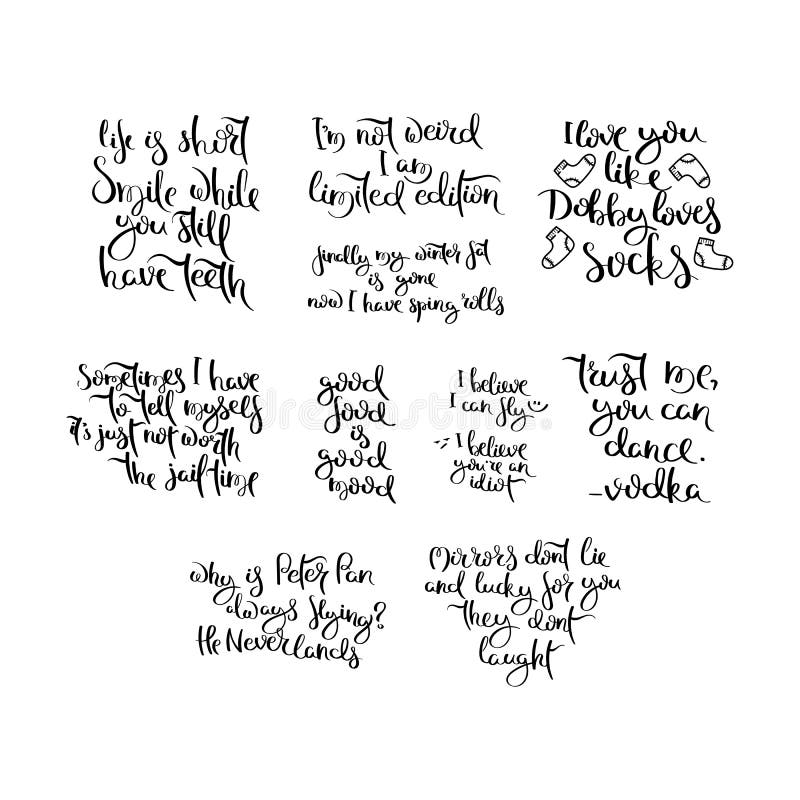 life is short
Smile while
you still
have teeth
I'm not weird
I am
limited edition
finally my winter fat
is gone
now I have sping rolls
I love you
like
Dobby loves
socks
Sometimes I have
to tell myself
it's just not worth
the jail time
good
food
is
good
mood
I believe
I can fly
I believe
you're an
idiot
trust me,
you can
dance.
-vodka
why is Peter Pan
always flying?
He Neverlands
Mirrors dont lie
and lucky for you
they dont
laught
dreamstime